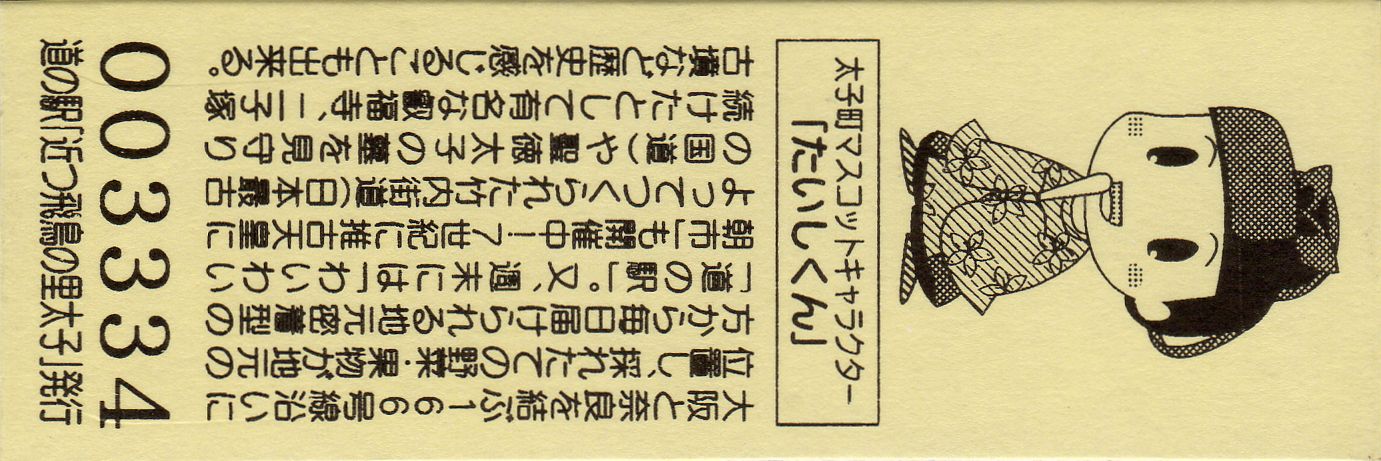 太子町マスコットキャラクター
「たいしくん」
大阪と奈良を結ぶ166号線沿いに
位置し、採れたての野菜・果物が地元の
方から毎日届けられる地元密着型の
「道の駅」。又、週末には「わいわい
朝市」も開催中!7世紀に推古天皇に
よってつくられた竹内街道(日本最古
の国道)や聖徳太子の墓を見守り
続けたとして有名な叡福寺、二子塚
古墳など歴史を感じることも出来る。
003334
道の駅「近つ飛鳥の里太子」発行